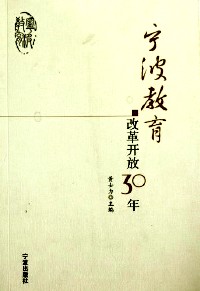 宁波教育
改革开放30年
黄士力 主编
宁波出版社